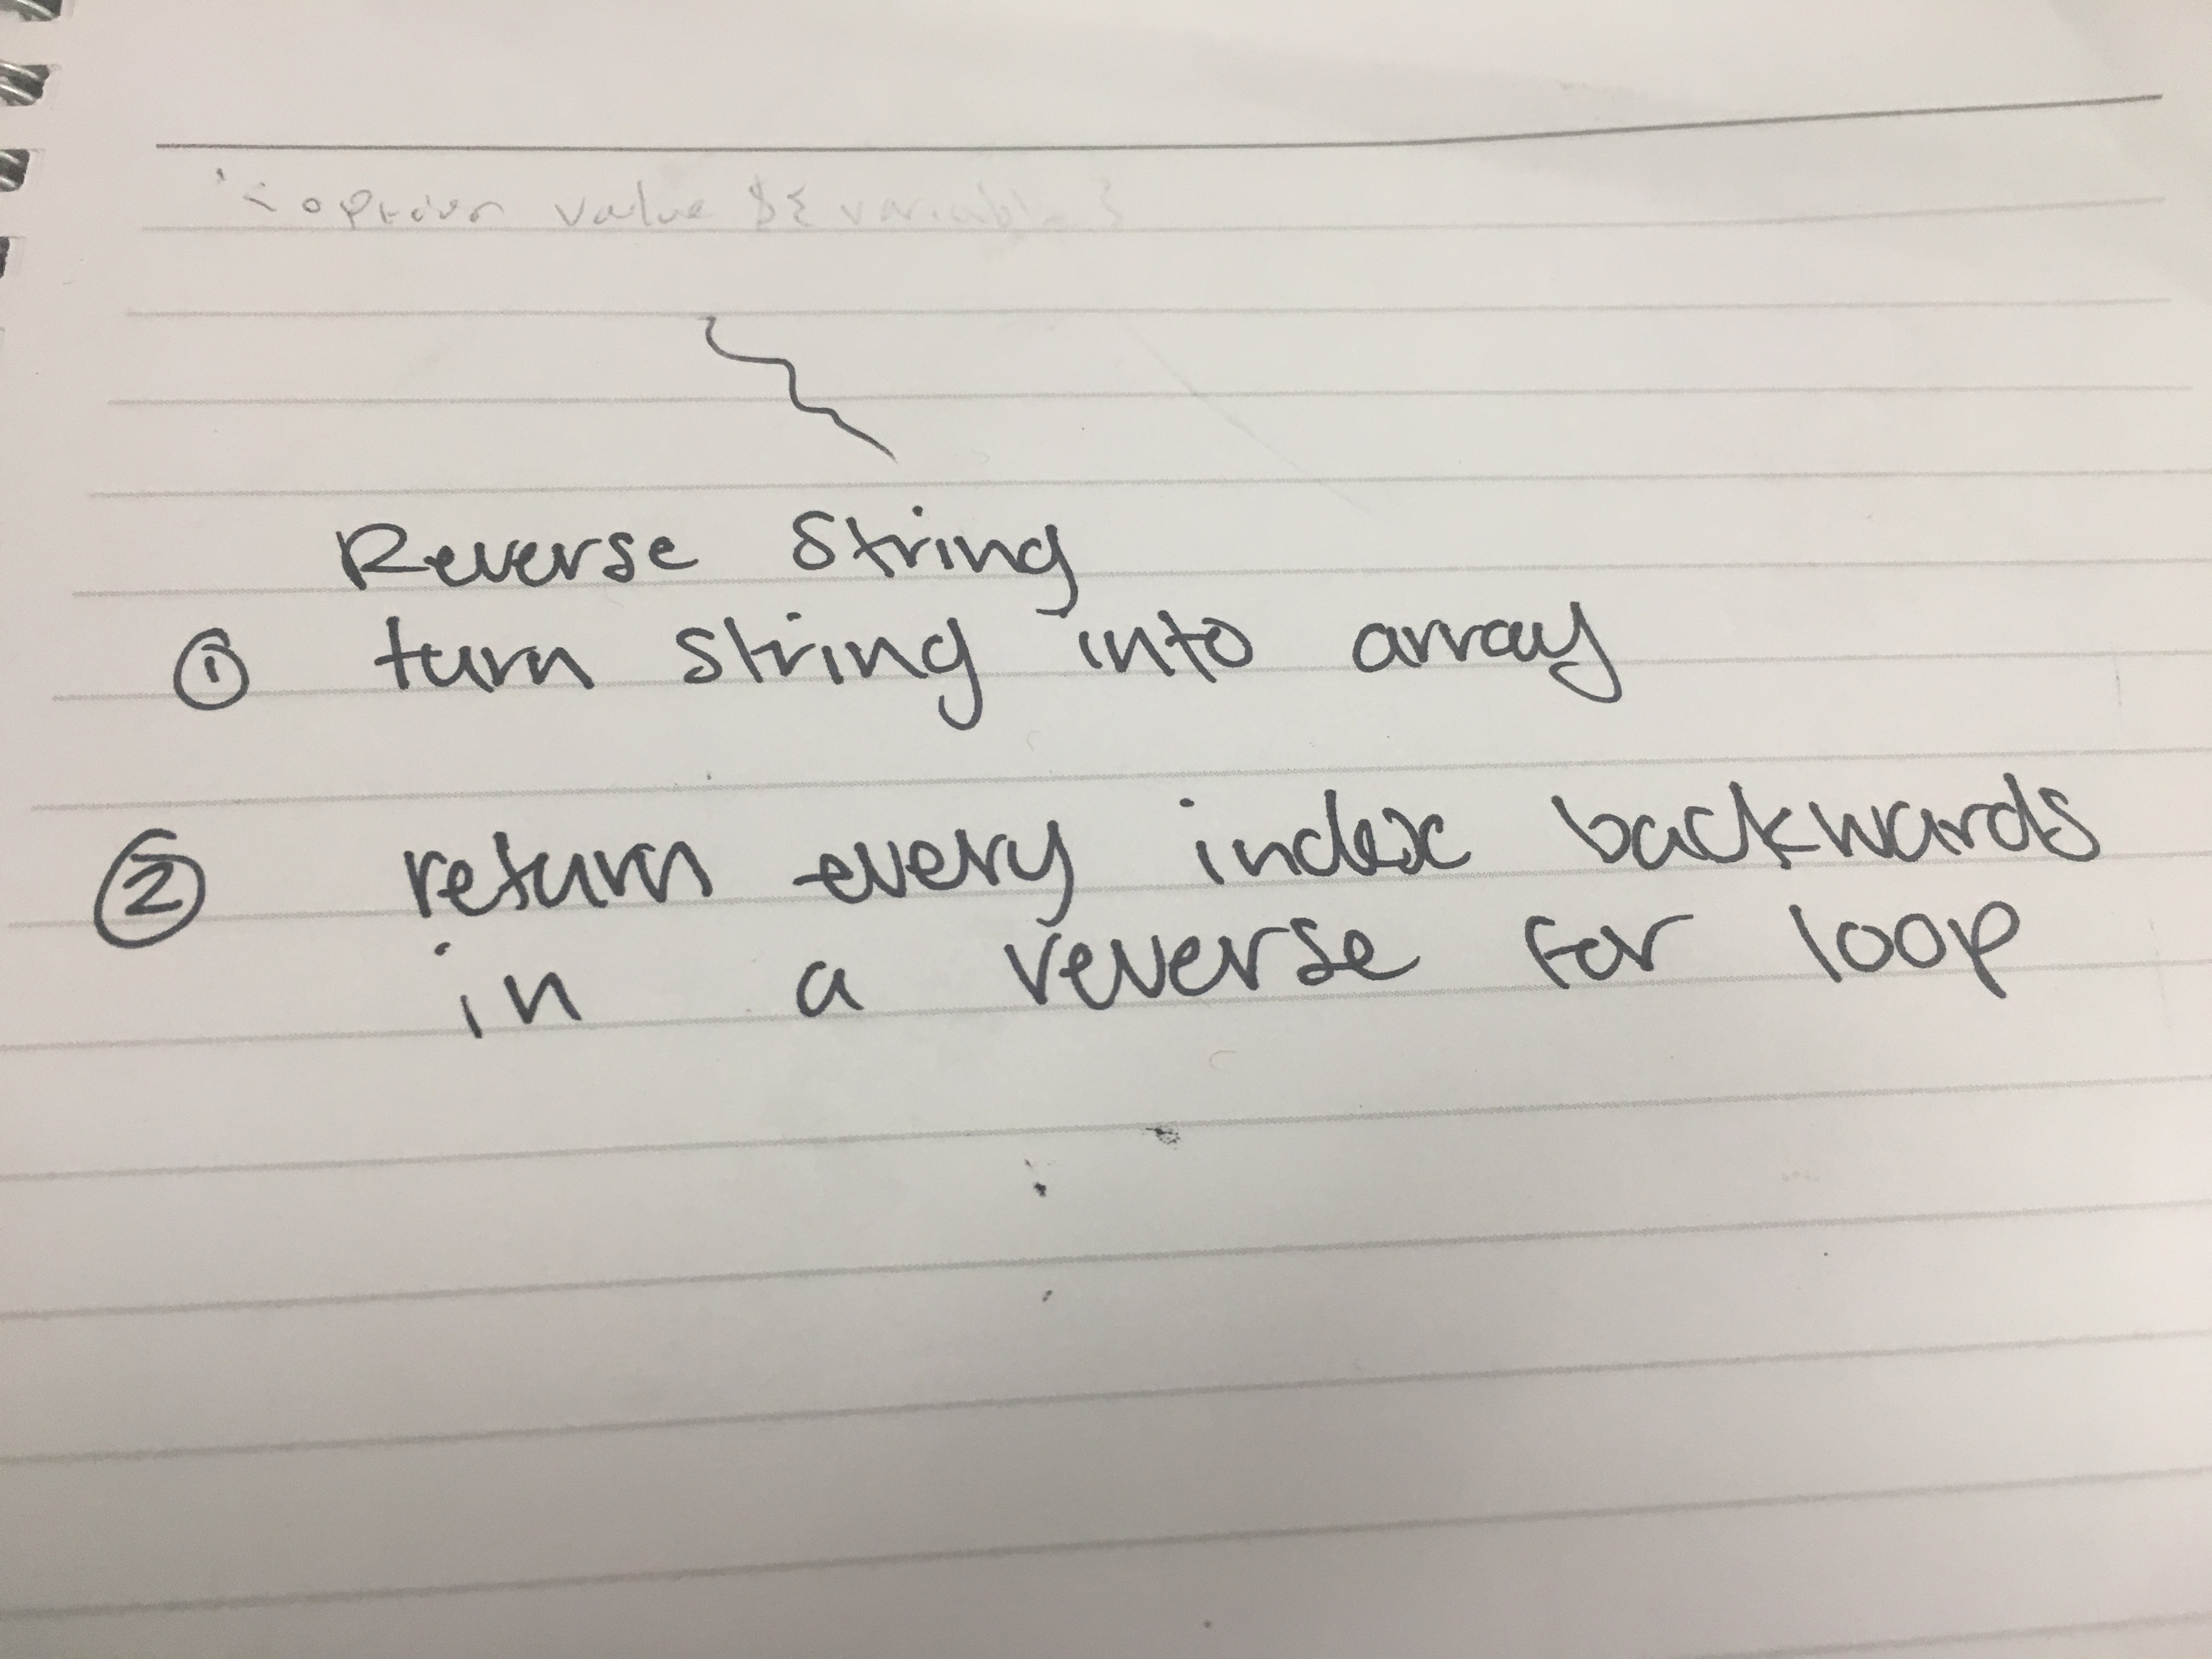 <option value ${variable}
Reverse string
① turn string into array
② return every index backwards
in a reverse for loop